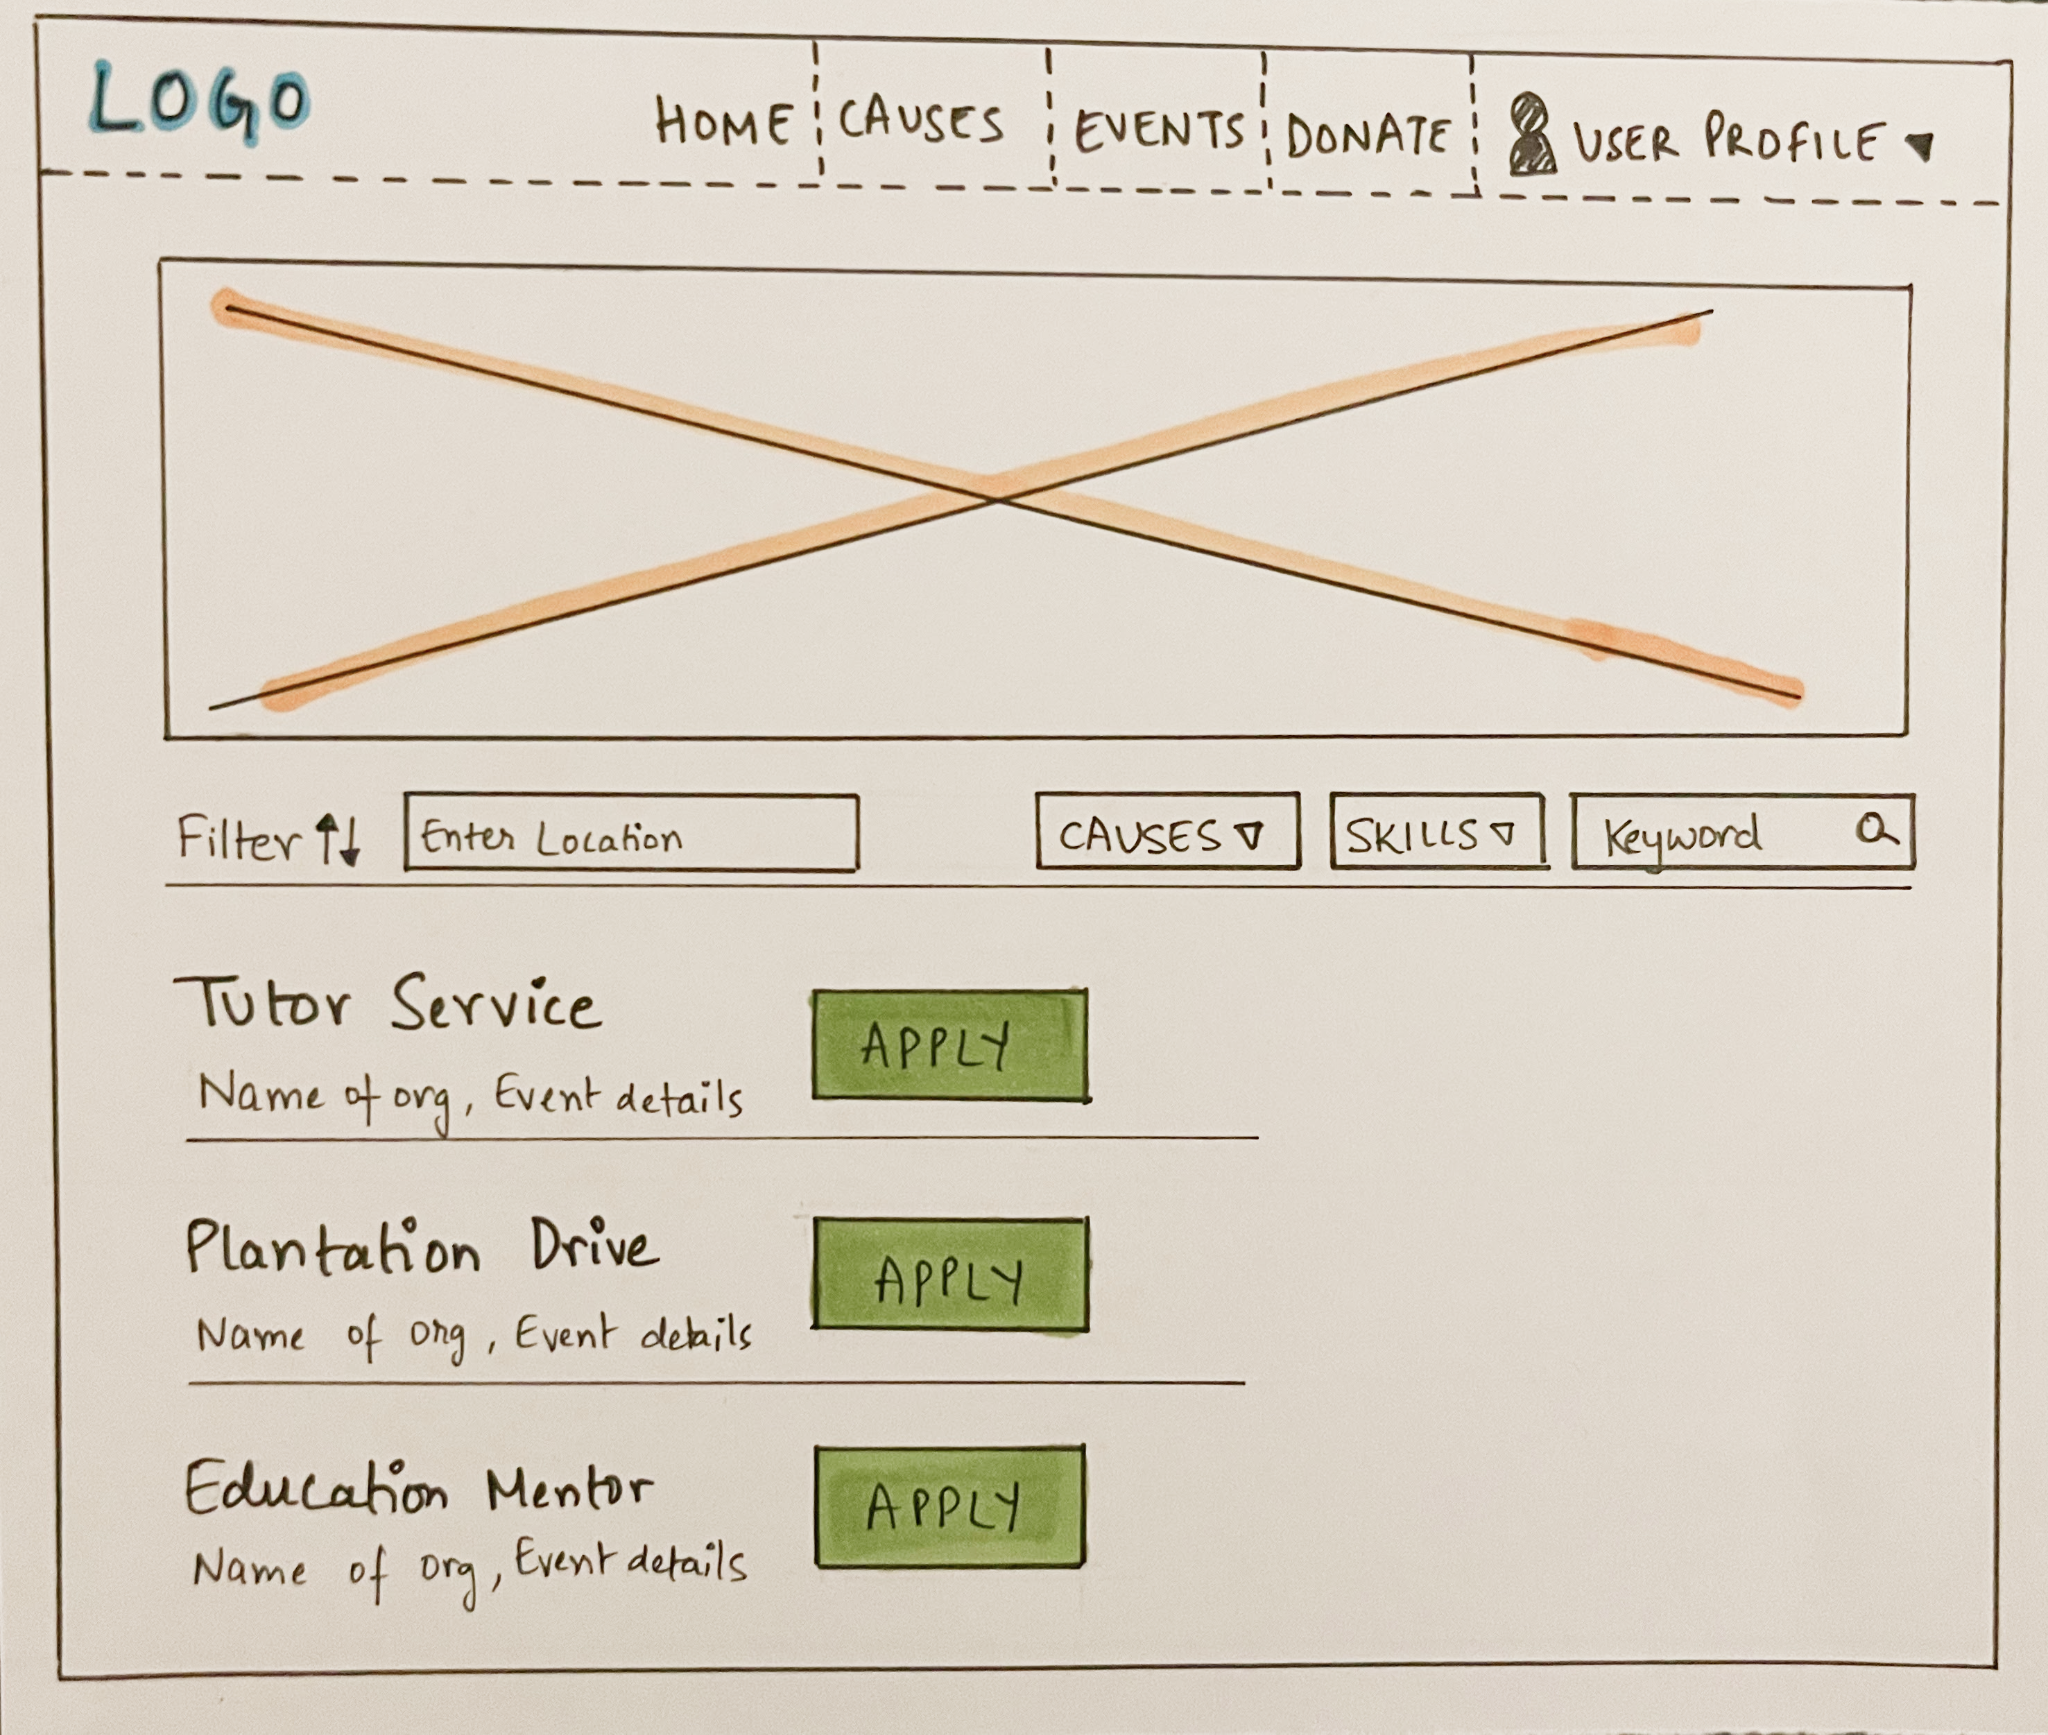 LOGO
HOME CAUSES EVENTS DONATE USER PROFILE
Filter Enter Location CAUSES SKILLS Keyword
Tutor Service
APPLY
Name of org, Event details
Plantation Drive
APPLY
Name of org, Event details
Education Mentor
APPLY
Name of org, Event details